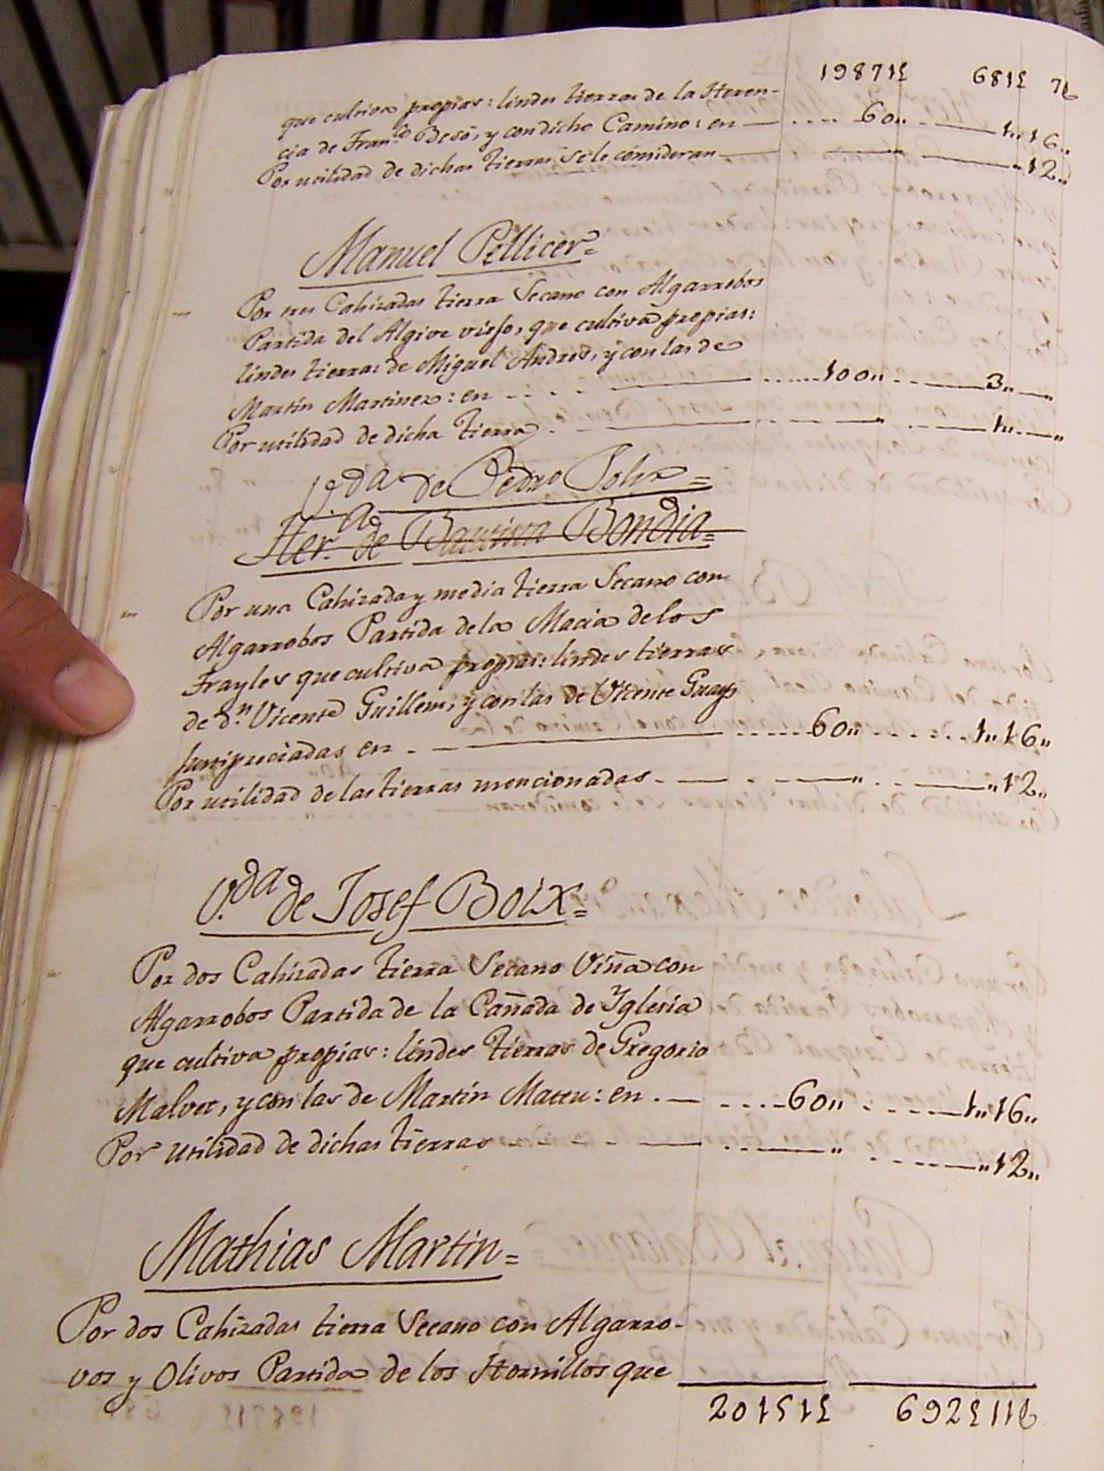 que cultiva propias: lindes tierras de la Heren-
cia de Fran.co Besó, y con dicho Camino: en 60" 1"16"
Por utilidad de dichas tierras se le consideran " "12"
Manuel Pellicer=
Por tres Cahizadas tierra Secano con Algarrobos
Partida del Algive viejo, que cultiva propias:
lindes tierras de Miguel Andres, y con las de
Martin Martinez: en 100" 3" "
Por utilidad de dicha tierra " 1" "
V.da de Pedro =
Her.a de Bautista Bondia=
Por una Cahizada y media tierra Secano con
Algarrobos Partida de la Macia de los
Frayles que cultiva propias: lindes tierras
de d.n Vicente Guillem, y con las de Vicente
Justipreciadas en 60" 1"16"
Por utilidad de las tierras mencionadas " "12"
V.da de Josef Boix=
Por dos Cahizadas tierra Secano Viña con
Algarrobos Partida de la Cañada de Yglesia
que cultiva propias: lindes tierras de Gregorio
Malvet, y con las de Martin Mateu: en 60" 1"16"
Por utilidad de dichas tierras " "12"
Mathias Martin=
Por dos Cahizadas tierra Secano con Algarro-
vos y Olivos Partida de los Hornillos que